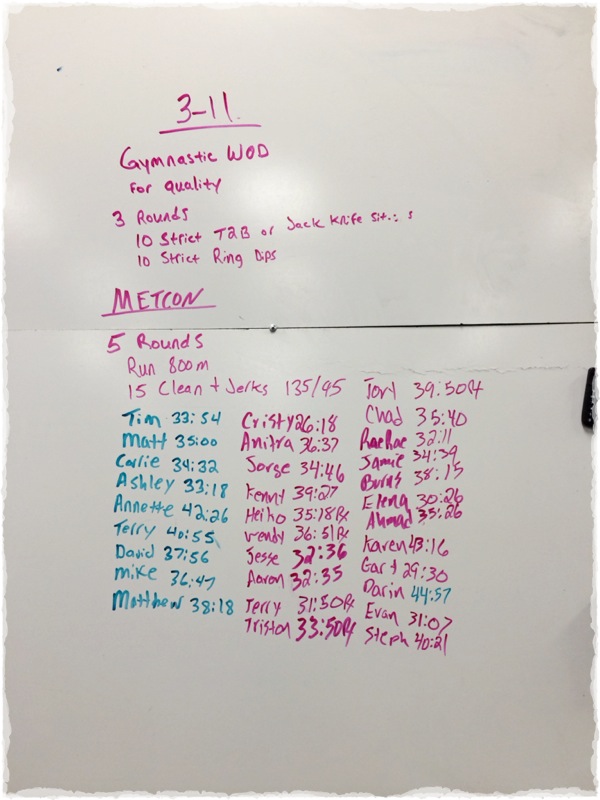 3-11.
Gymnastic WOD
for quality
3 Rounds
10 Strict T2B or Jack Knife
10 Strict Ring Dips
METCON
5 Rounds
Run 800m
15 Clean + Jerks 135/95
Tim 33:54
Matt 35:00
Carlie 34:32
Ashley 33:18
Annette 42:26
Terry 40:55
David 37:56
Mike 36:47
Matthew 38:18
Cristy 26:18
Anitra 36:37
Jorge 34:46
Kenny 39:27
Heiko 35:18 Rx
Wendy 36:51 Rx
Jesse 32:36
Aaron 32:35
Terry 31:50 Rx
Tristan 33:50 Rx
39:50 Rx
Chad 35:40
RaeRae 32:11
Jamie 34:39
Burns 38:15
Elena 30:26
Ahmad 35:26
Karen 43:16
Gary 29:30
Darin 44:57
Evan 31:07
Steph 40:21